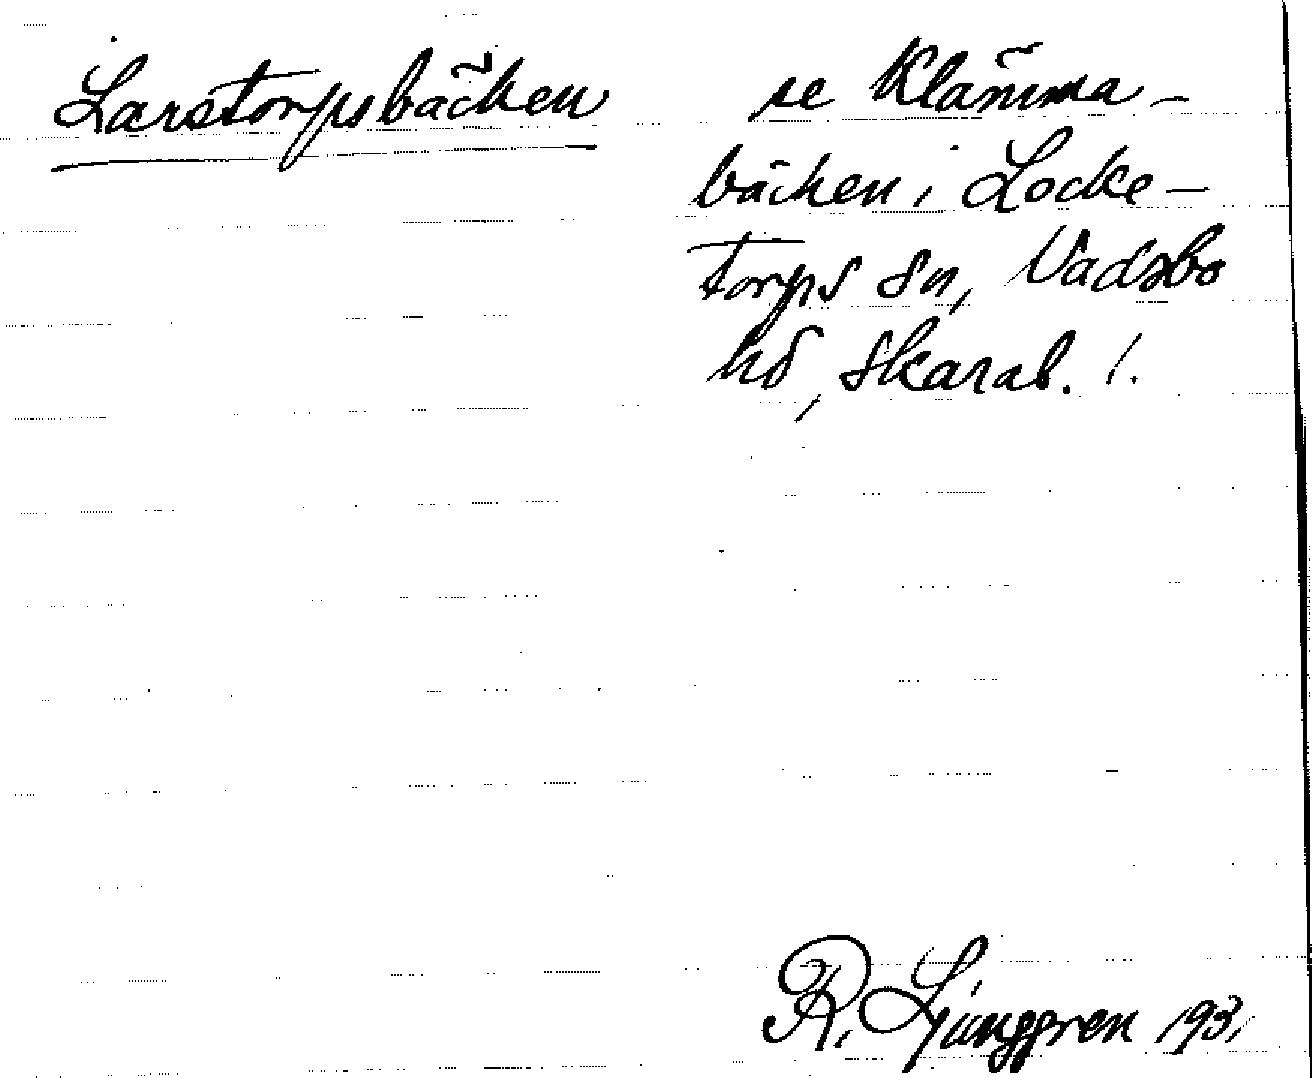 Larstorpsbäcken
se Klämma-
bäcken i Locke-
torps sn, Vadsbo
hd, Skarab. l.
R. Ljunggren 193